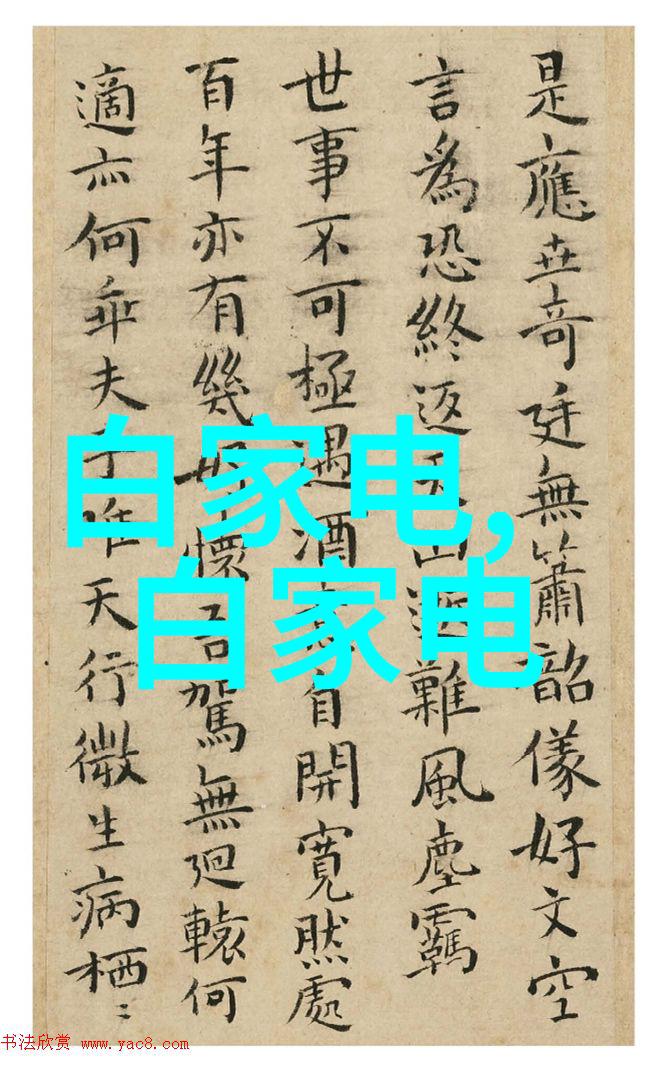 是應世奇廷無簫韶儀好文空
言爲恐終返 山 難風塵羈
世事不可極遇酒 自開寬然處
百年亦有幾 懷 駕無迴轅何
適亦何乖夫子唯天行微生病栖〻
白家电,
白家电
书法欣赏 www.yac8.com